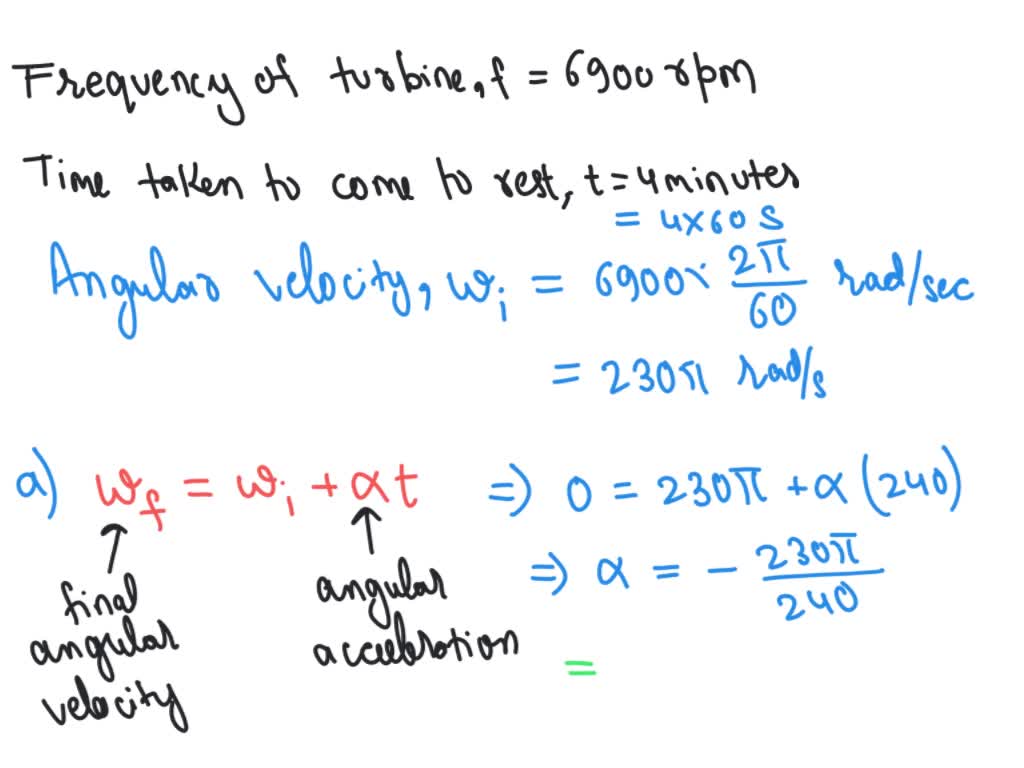 Frequency of turbine, f = 6900 rpm
Time taken to come to rest, t = 4 minutes
= 4×60 s
Angular velocity, ωi = 6900× 2π/60 rad/sec
= 230π rad/s
a) ωf = ωi + αt ⇒ 0 = 230π + α (240)
⇒ α = - 230π/240
final angular velocity
angular acceleration
=